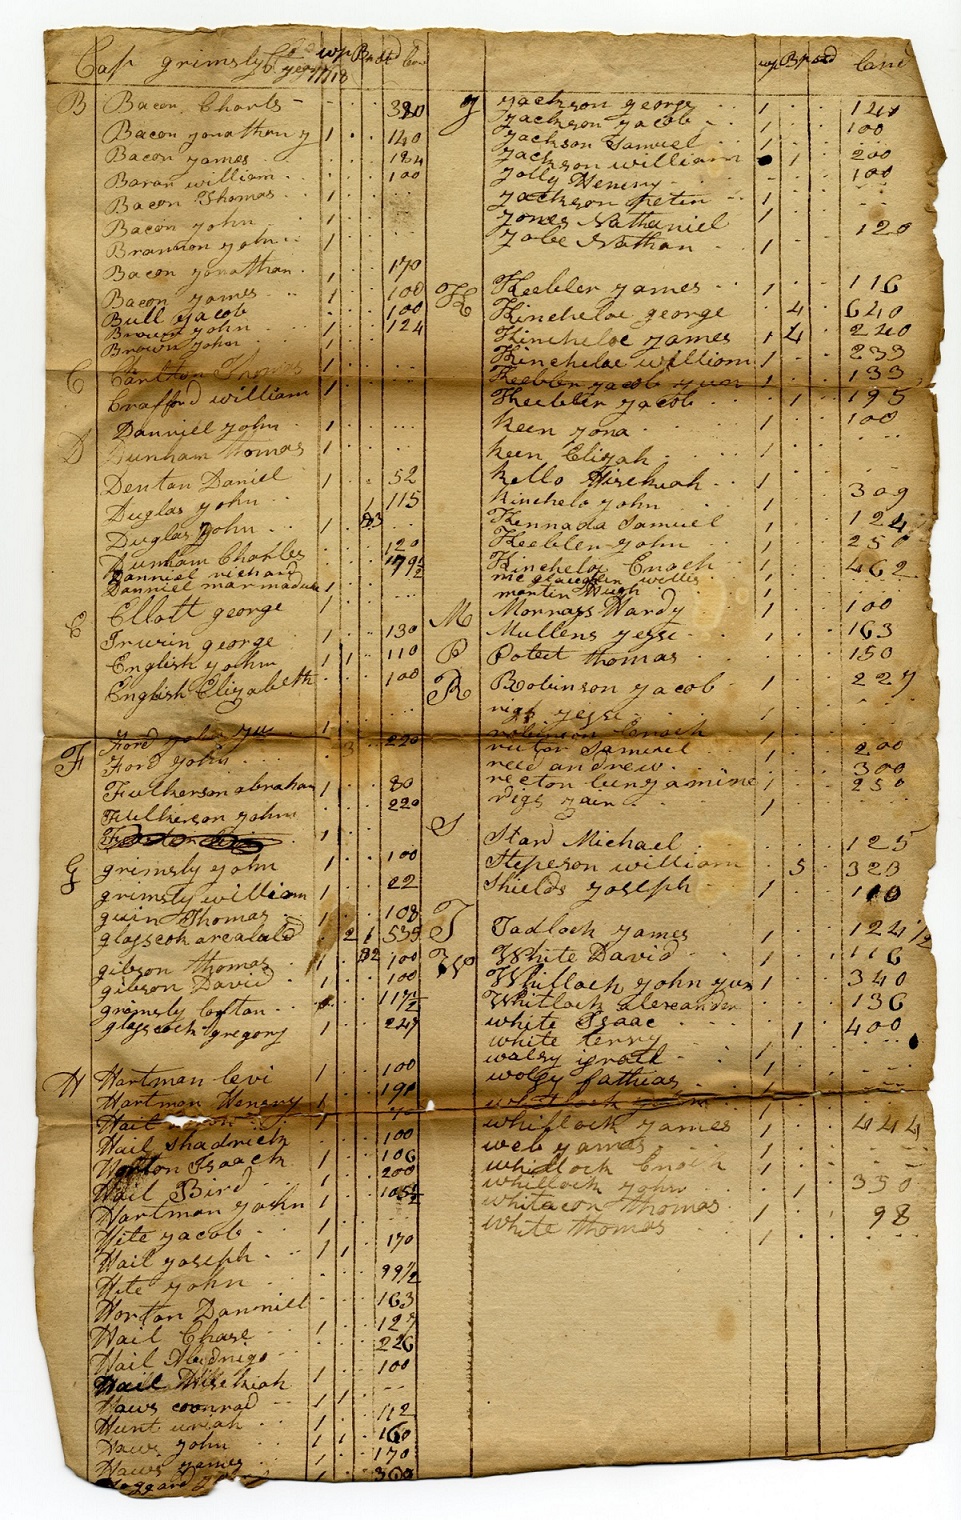 Cap grimsly Co wp B land
year 1718
B Bacon Charls - 380
Bacon yonathan y 1 140
Bacon yames 184
Baron william 1 100
Bacon Thomas 1
Bacon john
Brannon john 1
Bacon yonathan 170
Bacon yames 1 100
Bull yacob 100
Brown john 1 124
Brown john 1
C Carlton Thomas 1
Crafford william 1
Danniel john 1
D Dunham thomas 1
Denton Daniel 1 52
Duglas john 1 115
Duglas john 1
Dunham Charles 120
Danniel richard 179½
Danniel marmaduke 1
E Ellott george 1
Irwin george 130
English john 1 1 110
English Elizabeth 100
Ford john 1
F Ford john 3 220
Fulkerson abraham 1 80
Fullkerson john 220
G grimsly john 100
grimsly william 22
guin Thomas 1 108
glasscok arcalald 2 1 539
gibson thomas 1 100
gibson David 100
grimsly lofton 117½
glasscock gregory 1 247
H Hartman levi 1 100
Hartman Henery 1 190
Hail
Hail shadrick 100
Horton Isaack 1 106
Hail Bird 200
Hartman john 1 105½
Hite yacob
Hail yoseph 1 1 170
Hite john 99½
Horton Danniel 163
Hail Chase 1 127
Hail Abednigo 226
Hail Hisekiah 1 100
Haws conrad 1 1
Hunt uriah 1 112
Haws john 1 1 160
Haws yames 170
Hoggard 1 360
wp B land
J yackson george 1 140
yackson yacob 1 100
yackson Samuel 1
yackson william 1 200
yolly Henery 100
yackson petin 1
yones Nathaniel 1
yobe Nathan 1 120
K Keebler yames 1 116
Kincheloe george 4 640
Kincheloe yames 1 4 220
Kincheloe william 1 233
Keebler yacob yun 1 133
Keebler yacob 1 195
keen yona 1 100
keen Elijah 1
kello Hisekiah 1
kinchelo john 1 309
Kennada Samuel 1 124
Keebler john 1 250
Kinchelox Enoch 1 462
mc glaughlin willis
martin Hugh 1
M Morrass Hardy 1 100
Mullens yesse 1 163
P Poteet thomas 150
R Robinson yacob 1 227
rigs yesse 1
robinson Enoch 1
rictor Samuel 1 200
reed andrew 300
recton bengamine 1 250
rigs zain 1
S Stard Michael 125
Stepeson william 5 323
Shields yoseph 1 100
T Tadlock yames 1 124½
W White David 1 116
Whitlock john yun 1 340
Whitlock alexander 136
white Isaac 1 400
white terry 1
walsy israel 1
wolsy fathias 1
whitlock
whitlock yames 1 444
web yames 1
whitlock Enoch 1
whitlock john 1 350
whitacon Thomas 1 98
white thomas 1